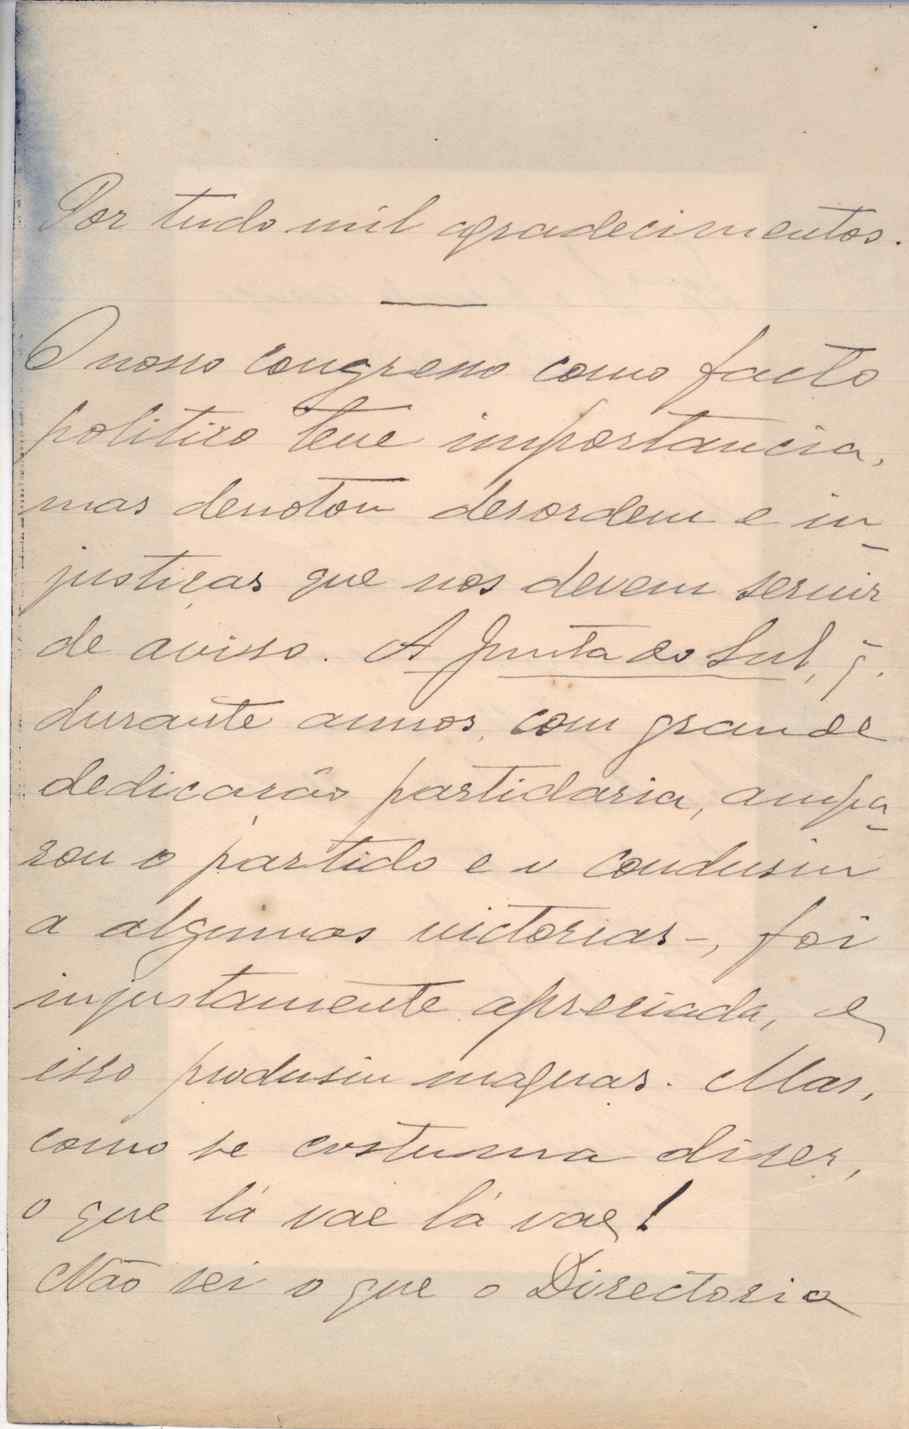 Por tudo mil agradecimentos.
O nosso congresso como facto
politico teve importancia,
mas denotou desordem e in-
justiças que nos devem servir
de aviso. A Junta do Sul, q.
durante annos, com grande
dedicação partidaria, ampa-
rou o partido e o condusiu
a algumas victorias -, foi
injustamente apreciada, e
isso produsiu maguas. Mas,
como se costuma diser,
o que lá vae lá vae!
Não sei o que o Directorio